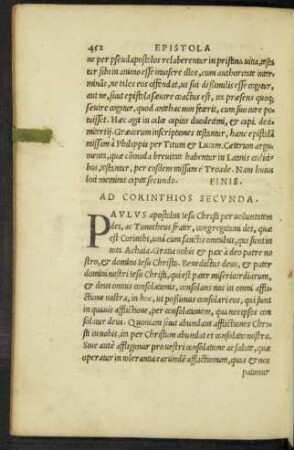 452 EPISTOLA
ne per pseudapostolos relaberentur in pristina uitia, testa
tur sibi in animo esse inuisere illos, cum authoritate
ne tales eos offendat, ut sui dissimilis esse cogatur,
aut ne, sua epistola seuere coactus est, ut præsens quoque
seuere cogatur, quod antehac non fecerit, cum suo iure po-
tuisset. Hæc agit in calce capitis duodecimi, & capi. deci
mitertij. Græcorum inscriptiones testantur, hanc epistolā
missam à Philippis per Titum & Lucam. Cæterum argu
menta, quæ elenchi breuitate habentur in Latinis codici
bus, testantur, per eosdem missam è Troade. Nam huius
loci meminit capite secundo. FINIS.
AD CORINTHIOS SECVNDA.
PAVLVS apostolus Iesu Christi per uoluntatem
dei, ac Timotheus frater, congregationi dei, quæ
est Corinthi, unà cum sanctis omnibus, qui sunt in
tota Achaia. Gratia uobis & pax à deo patre no
stro, & domino Iesu Christo. Benedictus deus, & pater
domini nostri Iesu Christi, qui est pater misericordiarum,
& deus omnis consolationis, consolans nos in omni affli
ctione nostra, in hoc, ut possimus consolari eos, qui sunt
in quauis afflictione, per consolationem, qua nos ipsos con
solatur deus. Quoniam sicut abundant afflictiones Chri
sti in nobis, ita per Christum abundat et consolatio nostra.
Siue autē affligimur pro uestri consolatione ac salute, quæ
operatur in tolerantia earundē afflictionum, quas & nos
patimur